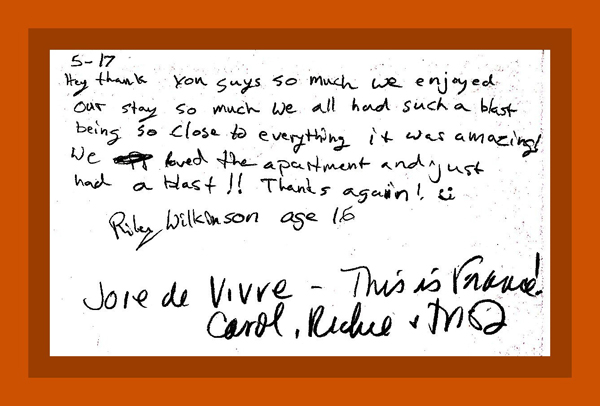 5-17
Hey thank you guys so much we enjoyed
our stay so much we all had such a blast
being so close to everything it was amazing!
We loved the apartment and just
had a blast!! Thanks again!
Riley Wilkinson age 16
Joie de Vivre - This is France!
Carol, Richie +